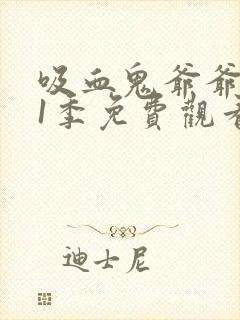 吸血鬼爺爺
1季免費觀看
迪士尼